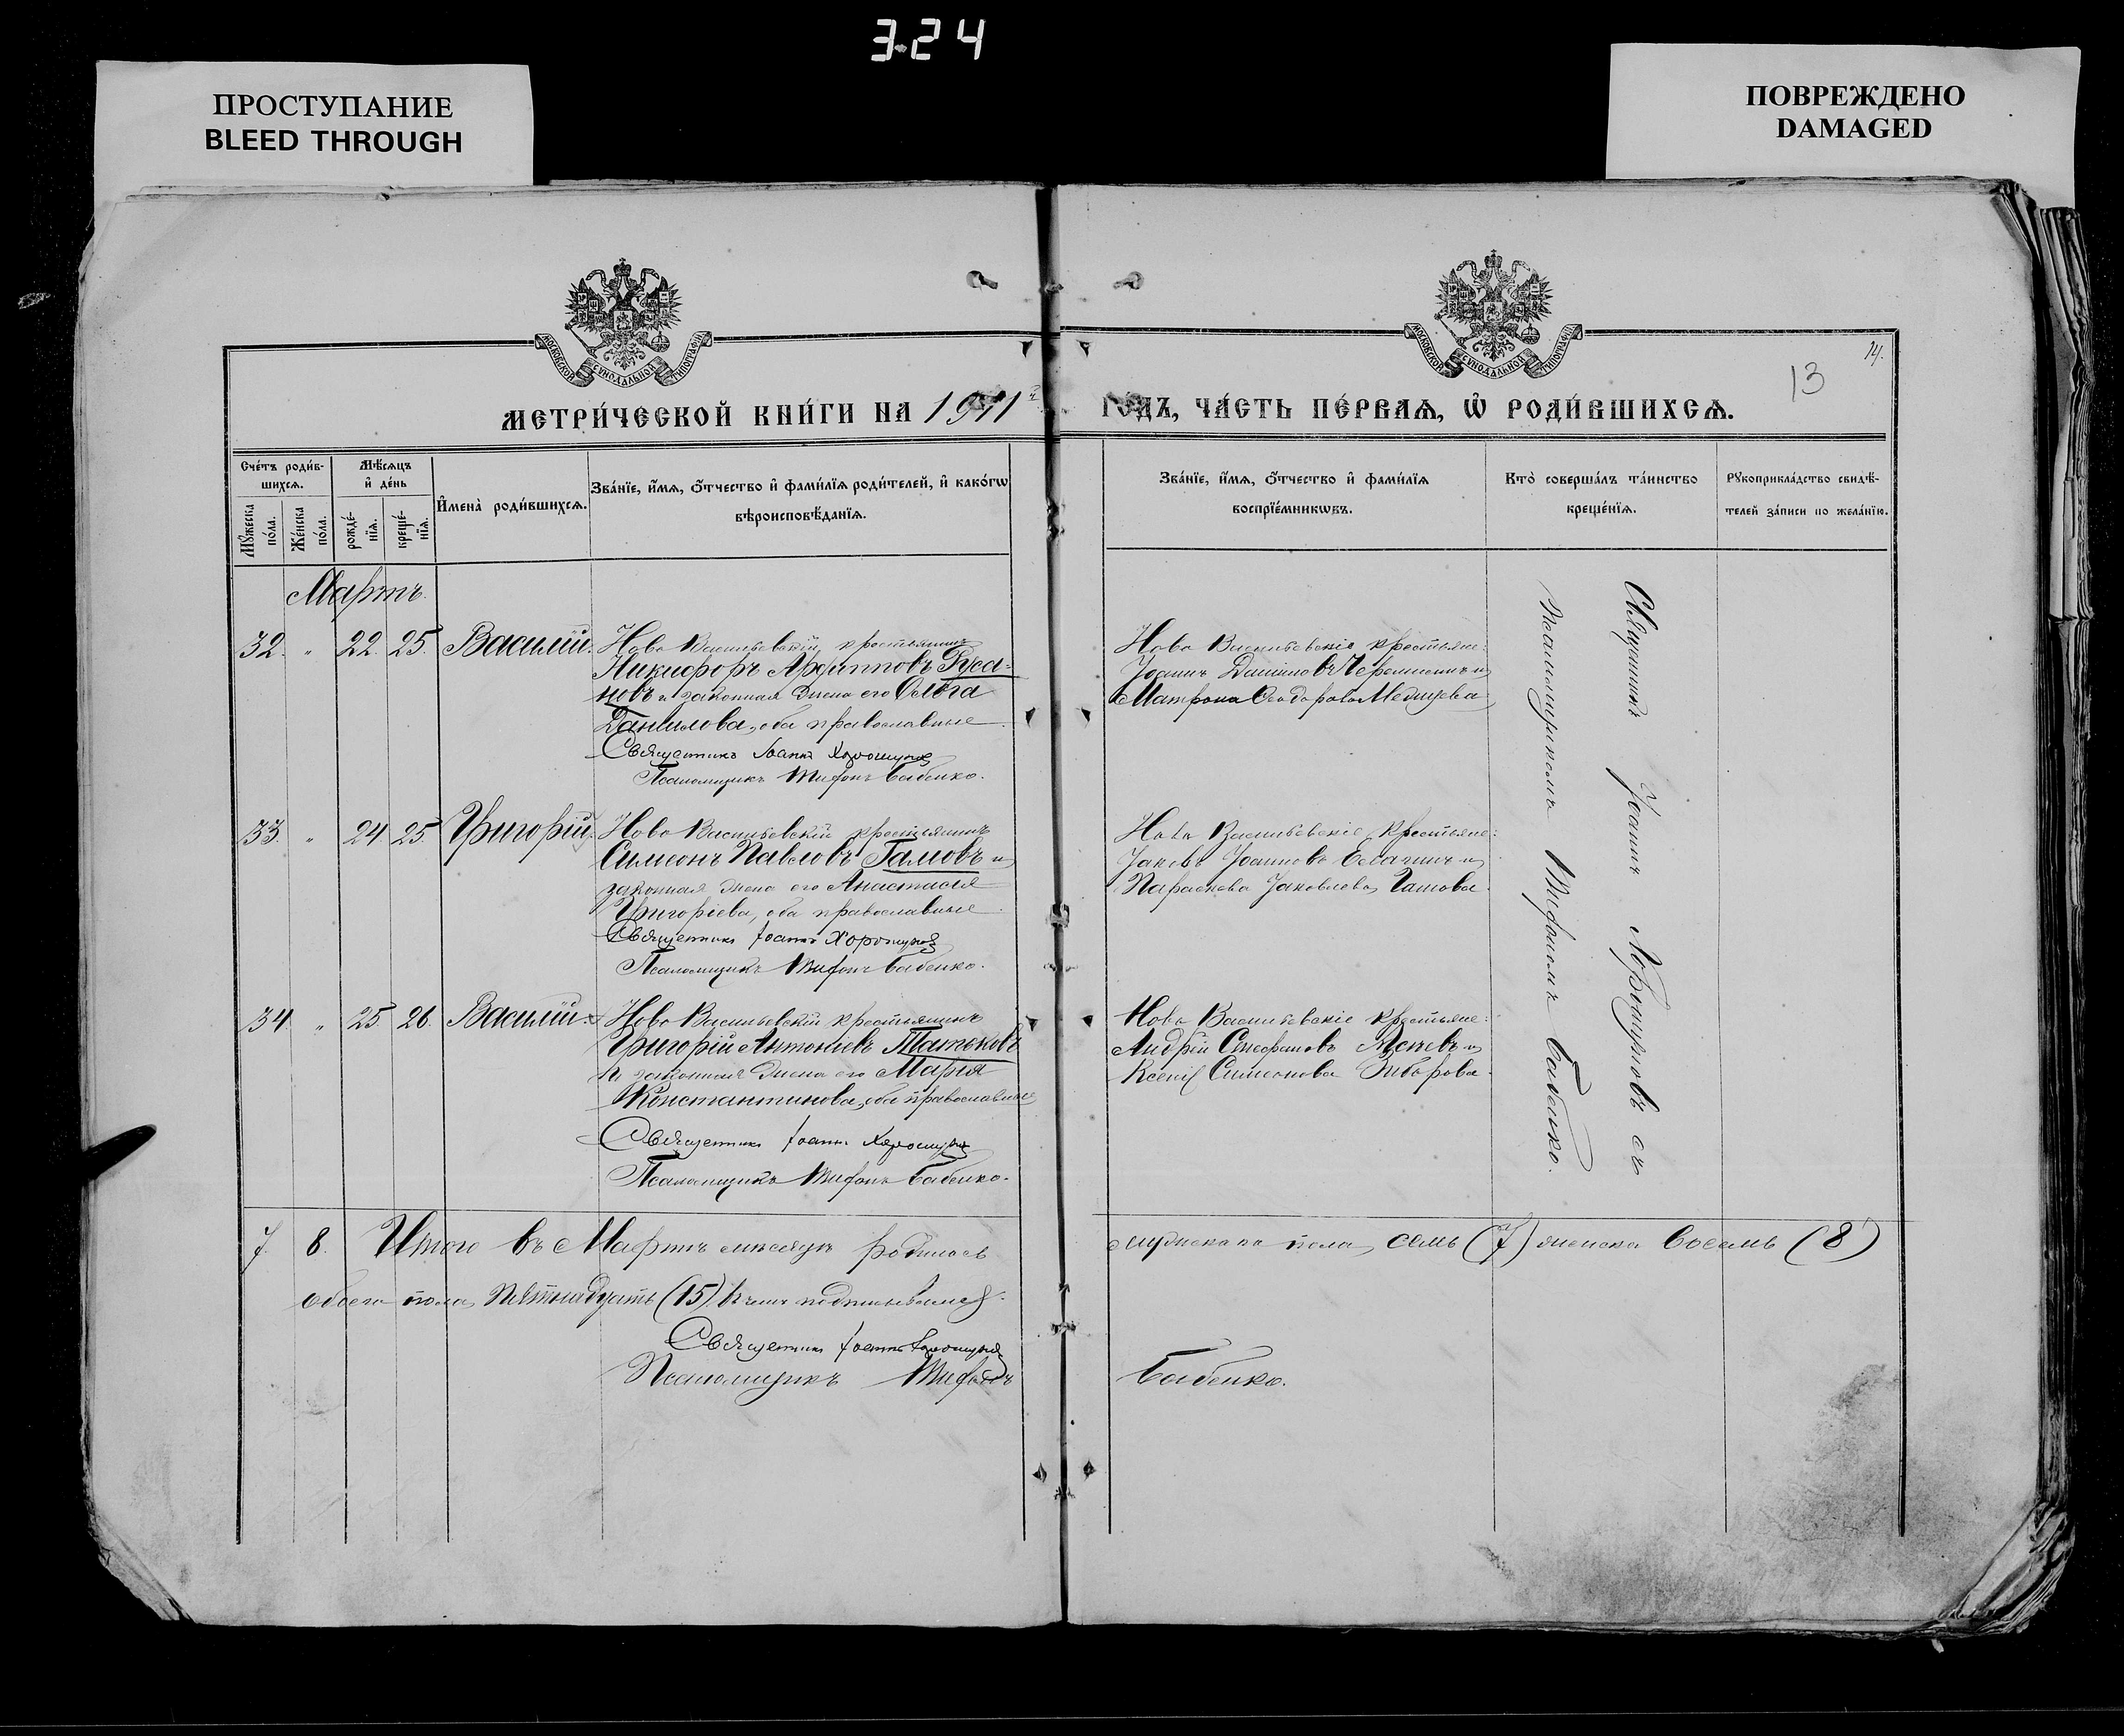 324
ПРОСТУПАНИЕ
BLEED THROUGH
ПОВРЕЖДЕНО
DAMAGED
МОСКОВСКОЙ СѴНОДАЛЬНОЙ ТИПОГРАФІИ
МОСКОВСКОЙ СѴНОДАЛЬНОЙ ТИПОГРАФІИ
14.
13
МЕТРИ́ЧЕСКОЙ КНИ́ГИ НА 1911 ГОДЪ, ЧА́СТЬ ПЕ́РВАѦ, Ѡ҆ РОДИ́ВШИХСѦ.
Сче́тъ роди́в-
шихсѧ.
Мꙋ́жеска
по́ла.
Же́нска
по́ла.
Мѣ́сѧцъ
и҆ де́нь
рожде́-
нїѧ.
креще́-
нїѧ.
И҆мена̀ роди́вшихсѧ.
Зва́нїе, и҆́мѧ, о҆́тчество и҆ фами́лїѧ роди́телей, и҆ како́гѡ
вѣроисповѣ́данїѧ.
Зва́нїе, и҆́мѧ, о҆́тчество и҆ фами́лїѧ
воспрїе́мникѡвъ.
Кто̀ соверша́лъ та́инство
креще́нїѧ.
Рꙋкоприкла́дство свидѣ́-
телей за́писи по жела́нїю.
Мартъ.
32. " 22. 25. Василій.
Ново Васильевскій крестьянинъ
Никифоръ Архипповъ Руса-
новъ и законная жена его Ольга
Данилова, оба православные
Священникъ Іоаннъ Хорошуновъ
Псаломщикъ Тифонъ Бабенко.
Ново Васильевскіе крестьяне:
Іоаннъ
Матрона Ѳеодорова
33. " 24. 25. Григорій.
Ново Васильевскій крестьянинъ
Симеонъ Павловъ Гамовъ и
законная жена его Анастасія
Григоріева, оба православные
Священникъ Іоаннъ Хорошуновъ
Псаломщикъ Тифонъ Бабенко.
Ново Васильевскіе крестьяне:
Іаковъ Іоанновъ и
Параскева Іаковлева
34 " 25. 26. Василій.
Ново Васильевскій крестьянинъ
Григорій Антоніевъ Татьковъ
и законная жена его Марія
Константинова, оба православные
Священникъ Іоаннъ Хорошуновъ
Псаломщикъ Тифонъ Бабенко.
Ново Васильевскіе крестьяне:
Андрей Стефановъ и
Ксенія Симеонова
Священникъ Іоаннъ Хорошуновъ съ
псаломщикомъ Тифономъ Бабенко.
7. 8. Итого въ Мартѣ мѣсяцѣ родилось мужеска пола семь (7) женска восемь (8)
обоего пола пятнадцать (15) въ чемъ подписываемся.
Священникъ Іоаннъ Хорошуновъ
Псаломщикъ Тифонъ Бабенко.